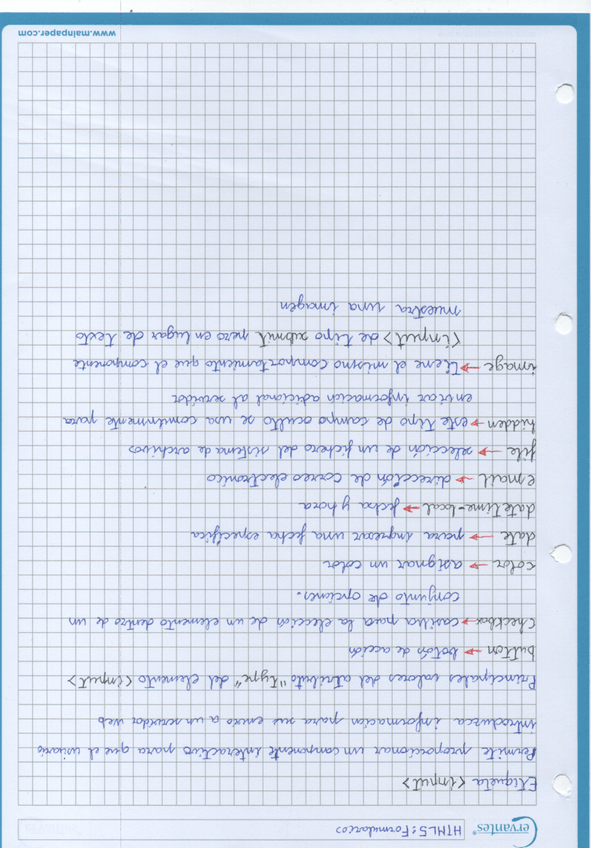 Cervantes®
HTML5: Formularios
Etiqueta <input>
Permite proporcionar un componente interactivo para que el usuario
introduzca información para sus envío a un servidor web
Principales valores del atributo "type" del elemento <input>
button → botón de acción
Checkbox → casilla para la elección de un elemento dentro de un
conjunto de opciones.
color → asignar un color
date → para ingresar una fecha específica
datetime-local → fecha y hora
email → dirección de correo electronico
file → selección de un fichero del sistema de archivos
hidden → este tipo de campo oculto se usa comúnmente para
enviar información adicional al servidor
image → tiene el mismo comportamiento que el componente
<input> de tipo submit pero en lugar de texto
muestra una imagen
www.mainpaper.com